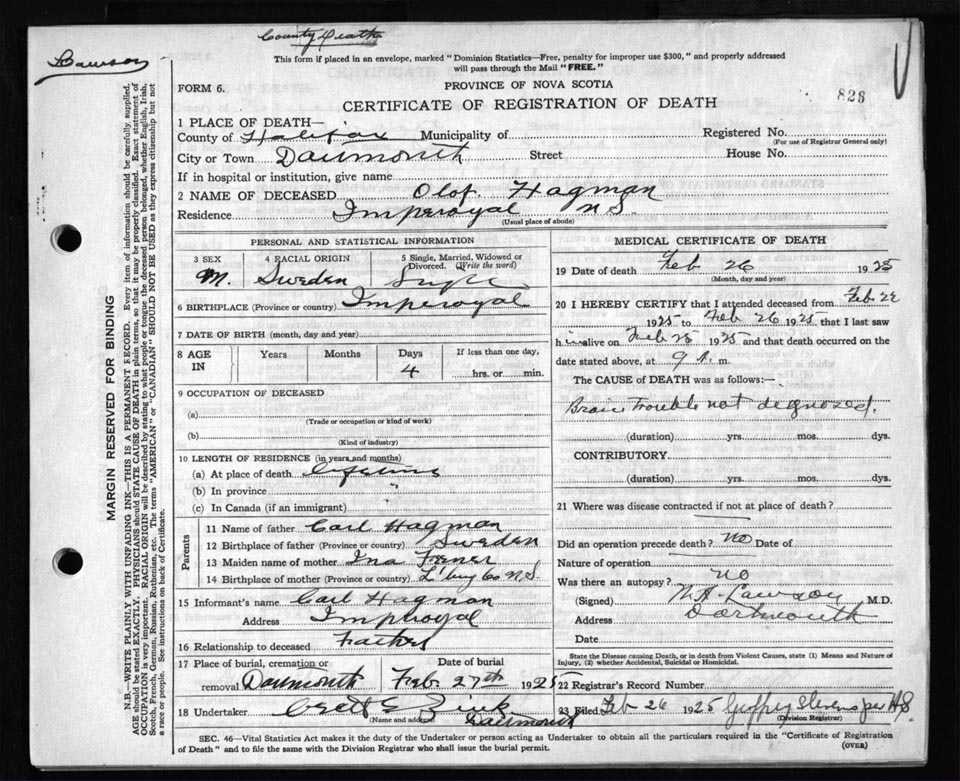 County Death
Lawson
This form if placed in an envelope, marked "Dominion Statistics—Free, penalty for improper use $300," and properly addressed
will pass through the Mail "FREE."
FORM 6.
PROVINCE OF NOVA SCOTIA
CERTIFICATE OF REGISTRATION OF DEATH
826
1 PLACE OF DEATH—
County of Halifax Municipality of Registered No.
(For use of Registrar General only)
City or Town Dartmouth Street House No.
If in hospital or institution, give name
2 NAME OF DECEASED Olof Hagman
Residence Imperoyal N S
(Usual place of abode)
PERSONAL AND STATISTICAL INFORMATION
3 SEX 4 RACIAL ORIGIN 5 Single, Married, Widowed or
Divorced. (Write the word)
M. Sweden Single
6 BIRTHPLACE (Province or country) Imperoyal
7 DATE OF BIRTH (month, day and year)
8 AGE IN Years Months Days If less than one day,
4 hrs. or min.
9 OCCUPATION OF DECEASED
(a)
(Trade or occupation or kind of work)
(b)
(Kind of industry)
10 LENGTH OF RESIDENCE (in years and months)
(a) At place of death lifetime
(b) In province "
(c) In Canada (if an immigrant)
Parents
11 Name of father Carl Hagman
12 Birthplace of father (Province or country) Sweden
13 Maiden name of mother Ina
14 Birthplace of mother (Province or country) L'burg Co N.S.
15 Informant's name Carl Hagman
Address Imperoyal
16 Relationship to deceased Father
17 Place of burial, cremation or Date of burial
removal Dartmouth Feb. 27th 1925
18 Undertaker Zink
(Name and address) Dartmouth
MEDICAL CERTIFICATE OF DEATH
19 Date of death Feb 26 1925
(Month, day and year)
20 I HEREBY CERTIFY that I attended deceased from Feb 22
1925 to Feb 26 1925 that I last saw
him alive on Feb 25 1925 and that death occurred on the
date stated above, at 9 A. m.
The CAUSE OF DEATH was as follows:—
Brain trouble not degnosed.
(duration) yrs. mos. dys.
CONTRIBUTORY
(duration) yrs. mos. dys.
21 Where was disease contracted if not at place of death?
Did an operation precede death? no Date of
Nature of operation
Was there an autopsy? no
(Signed) Lawson M.D.
Address Dartmouth
Date
State the Disease causing Death, or in death from Violent Causes, state (1) Means and Nature of
Injury, (2) whether Accidental, Suicidal or Homicidal.
22 Registrar's Record Number
23 Filed Feb 26 1925 Stevens per
(Division Registrar)
SEC. 46—Vital Statistics Act makes it the duty of the Undertaker or person acting as Undertaker to obtain all the particulars required in the "Certificate of Registration
of Death" and to file the same with the Division Registrar who shall issue the burial permit.
(OVER)
MARGIN RESERVED FOR BINDING
N.B.—WRITE PLAINLY WITH UNFADING INK—THIS IS A PERMANENT RECORD. Every item of information should be carefully supplied.
AGE should be stated EXACTLY. PHYSICIANS should STATE CAUSE OF DEATH in plain terms, so that it may be properly classified. Exact statement of
OCCUPATION is very important. RACIAL ORIGIN will be described by stating to what people or tongue the deceased person belonged, whether English, Irish,
Scotch, French, German, Russian, Ruthenian, etc. The terms "AMERICAN" or "CANADIAN" SHOULD NOT BE USED as they express citizenship but not
a race or people. See instructions on back of Certificate.